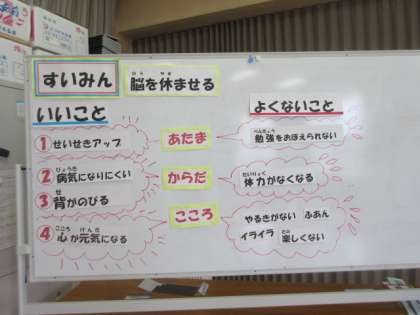 すいみん
脳を休ませる
いいこと
よくないこと
① せいせきアップ
あたま
勉強をおぼえられない
② 病気になりにくい
からだ
体力がなくなる
③ 背がのびる
こころ
やるきがない ふあん
④ 心が元気になる
イライラ 楽しくない